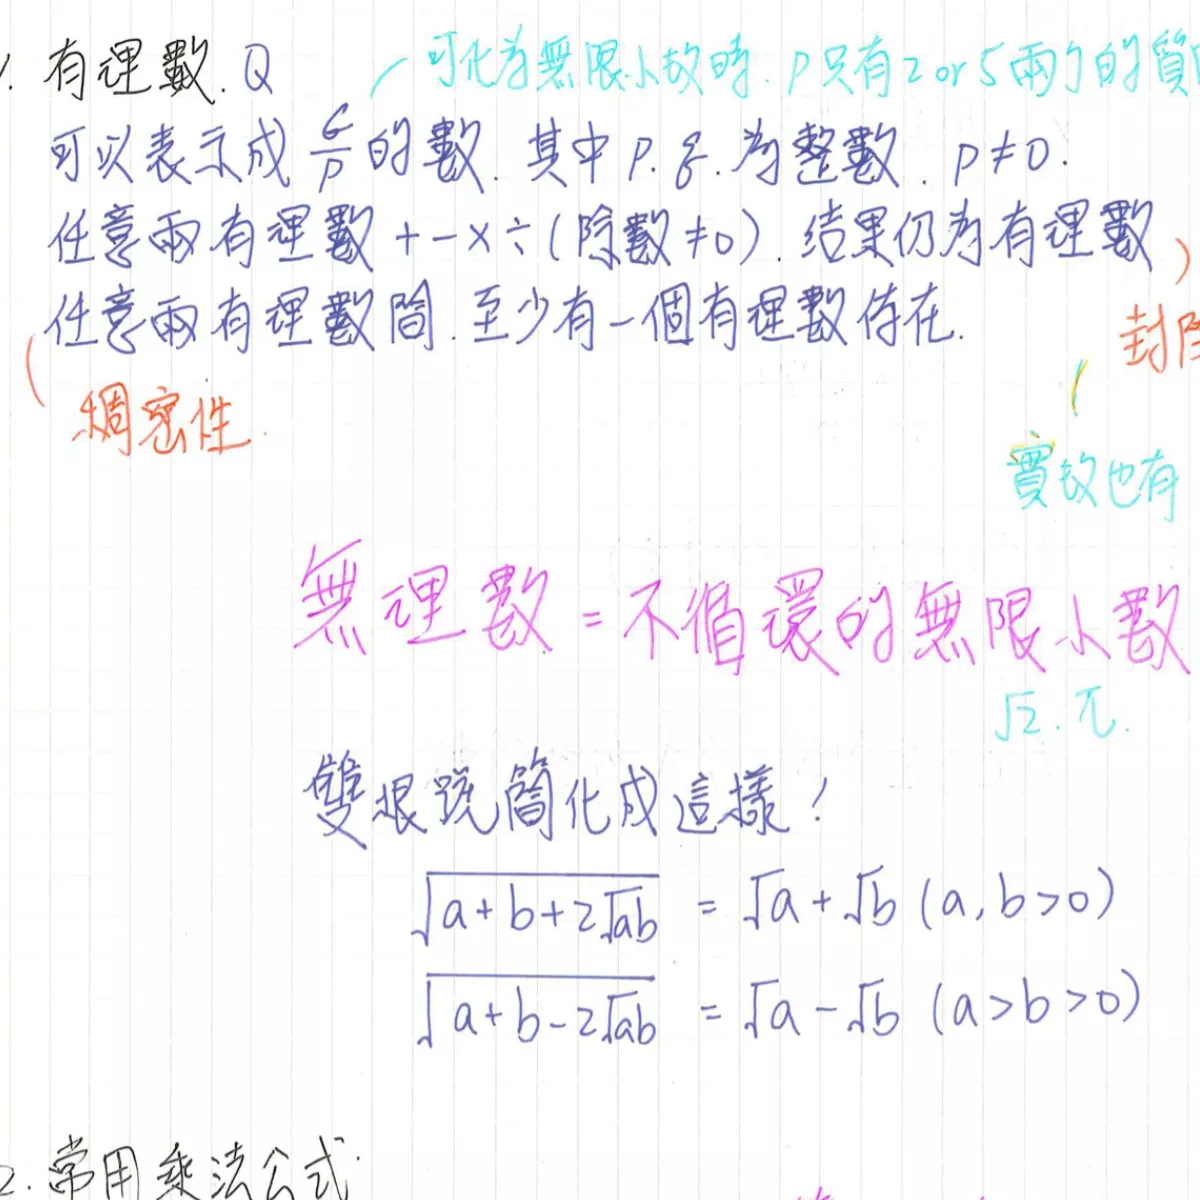 1. 有理數. Q
可化為無限小故時. P只有2 or 5兩個的質
可以表示成 q/p 的數. 其中 p. q. 為整數. p≠0.
任意兩有理數 + - × ÷ (除數≠0). 結果仍為有理數
任意兩有理數間. 至少有一個有理數存在.
封
稠密性.
實故也有
無理數 = 不循環的無限小數
√2. π.
雙根號簡化成這樣!
√(a+b+2√ab) = √a + √b (a, b > 0)
√(a+b-2√ab) = √a - √b (a > b > 0)
2. 常用乘法公式.